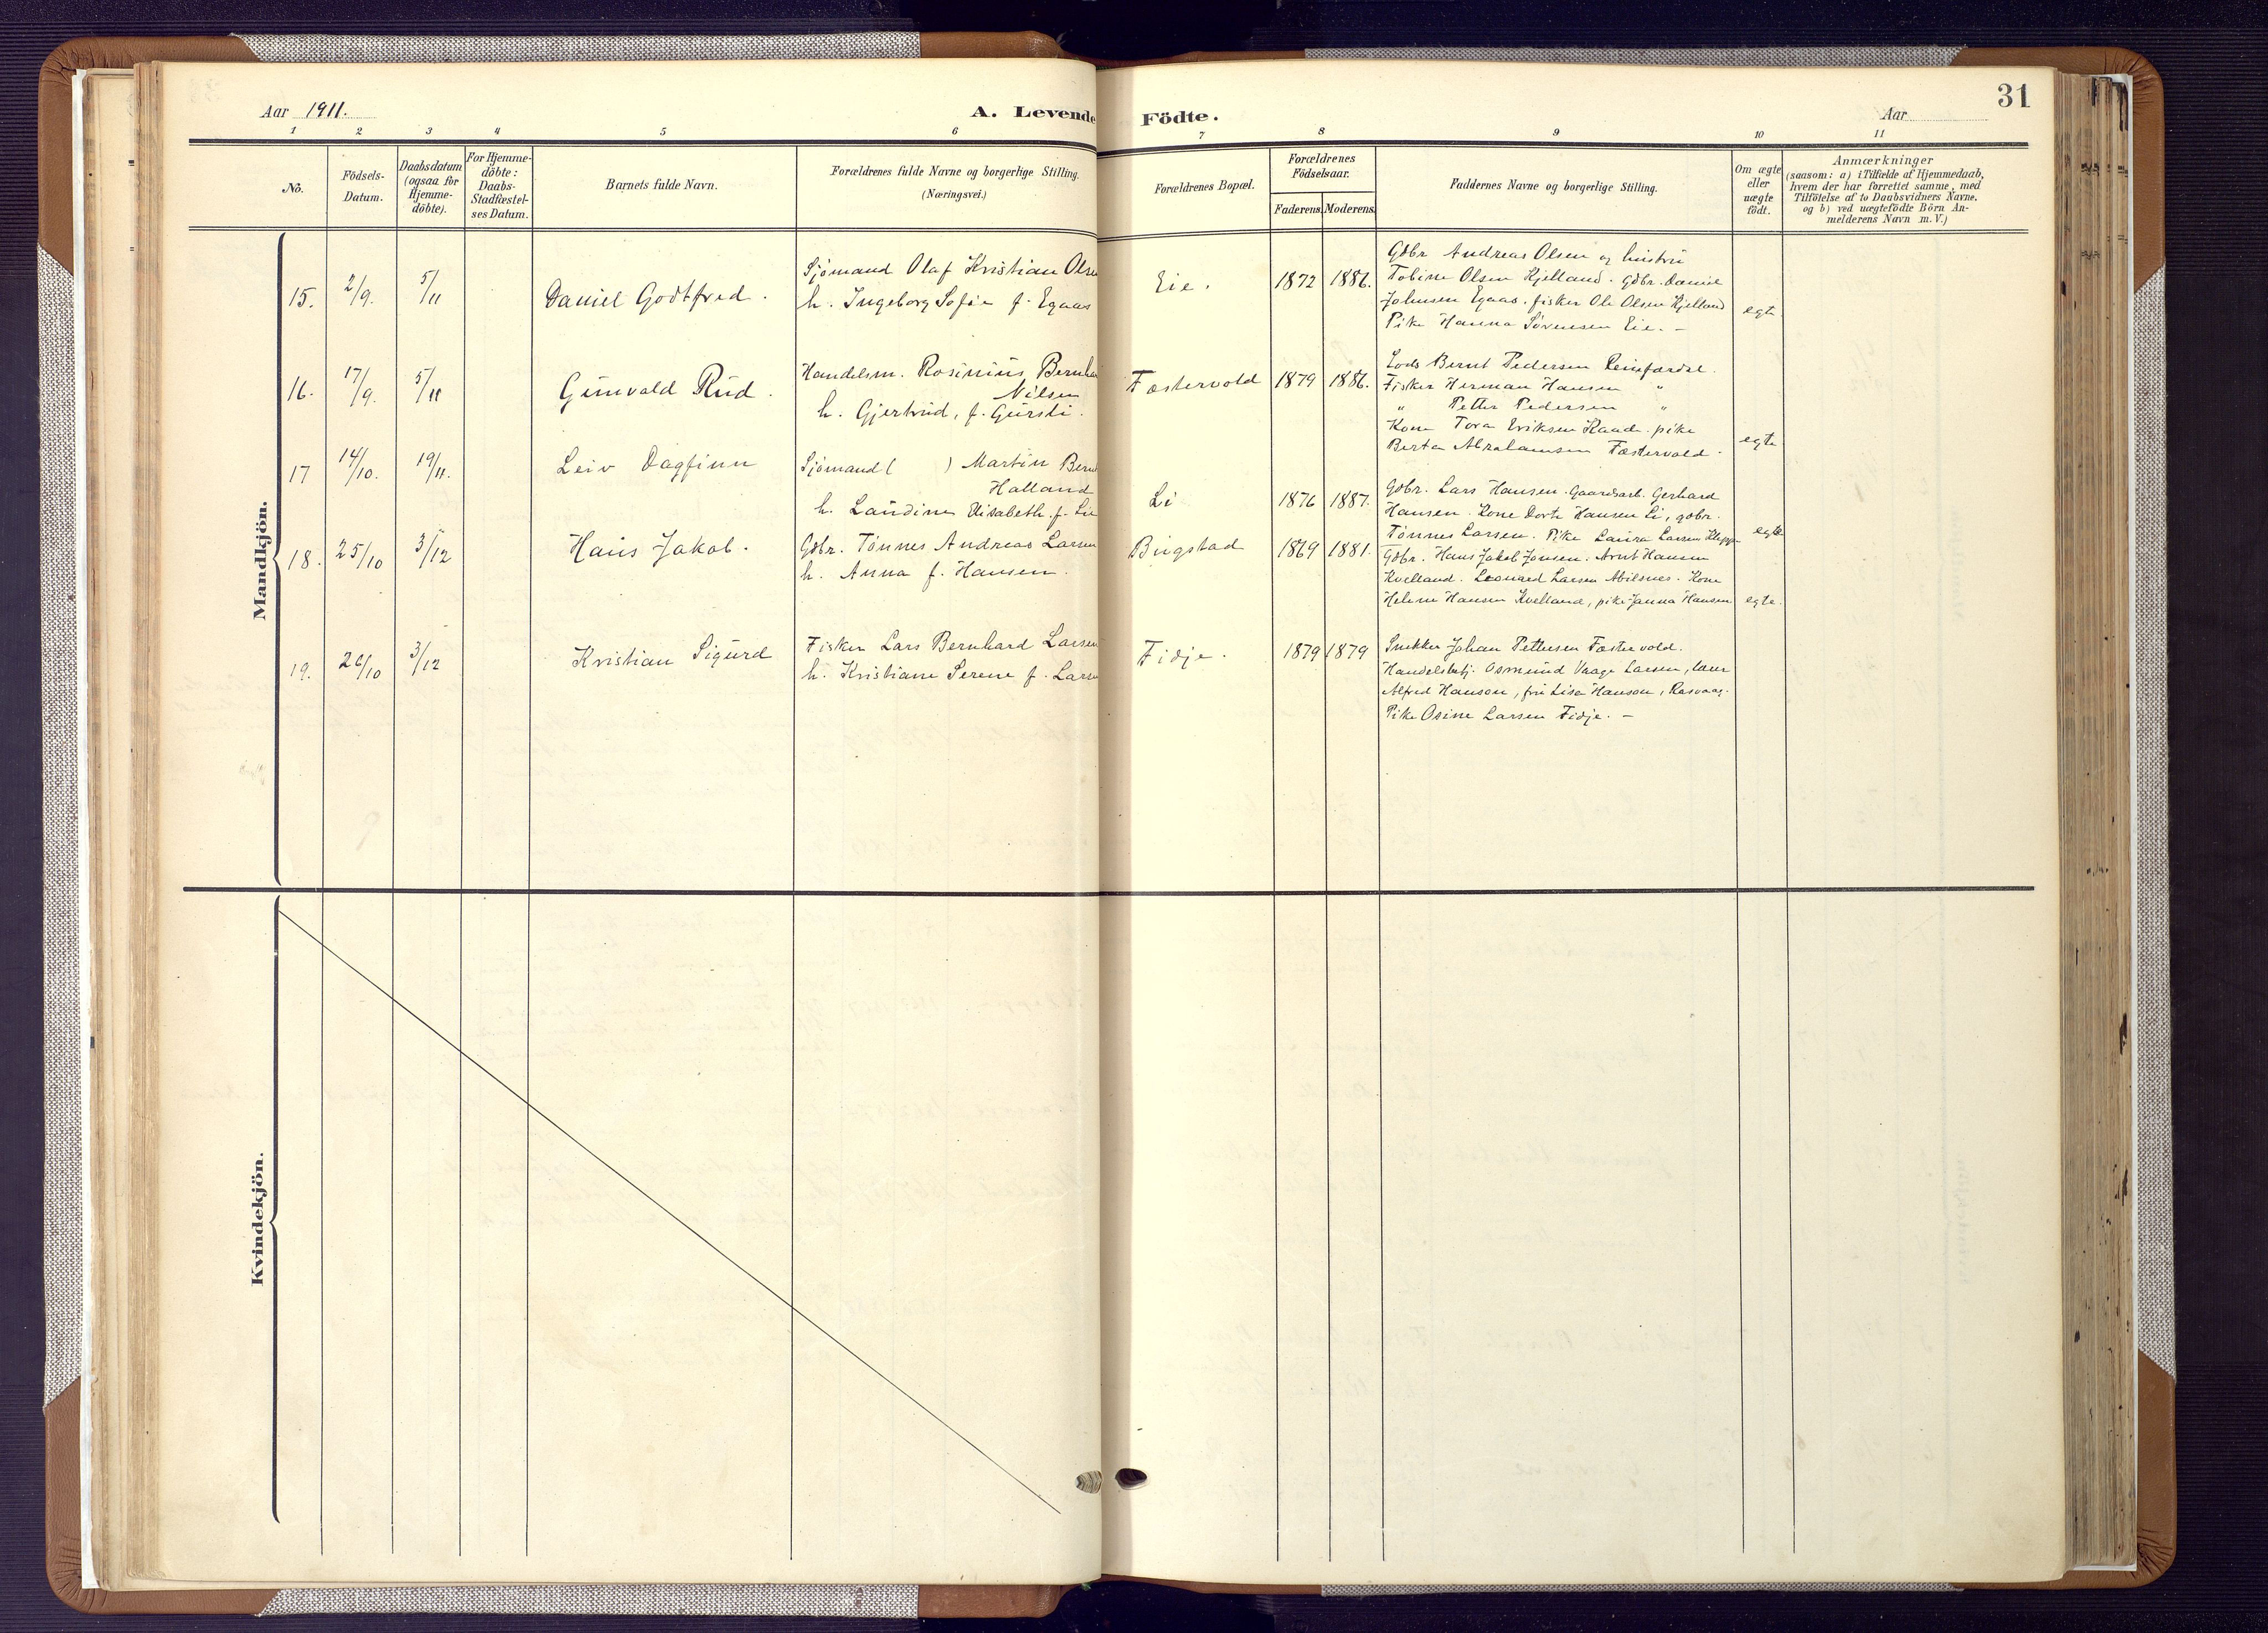 31
Aar 1911.
A. Levende Födte.
Aar
1 2 3 4 5 6 7 8 9 10 11
No.
Födsels-
Datum.
Daabsdatum
(ogsaa for
Hjemme-
döbte).
For Hjemme-
döbte:
Daabs-
Stadfæstel-
ses Datum.
Barnets fulde Navn.
Forældrenes fulde Navne og borgerlige Stilling.
(Næringsvei.)
Forældrenes Bopæl.
Forældrenes
Födselsaar.
Faderens. Moderens.
Faddernes Navne og borgerlige Stilling.
Om ægte
eller
uægte
födt.
Anmærkninger
(saasom: a) i Tilfælde af Hjemmedaab,
hvem der har forrettet samme, med
Tilföielse af to Daabsvidners Navne,
og b) ved uægtefödte Börn An-
melderens Navn m. V.)
Mandkjön.
15. 2/9. 5/11 Daniel Godtfred.
Sjømand Olaf Kristian Olse
h. Ingeborg Sofie f. Egaas
Eie. 1872 1886.
Gdbr Andreas Olsen og hustru
Tobine Olsen Kjelland. Gdbr. Daniel
Johnsen Egaas. fisker Ole Olsen Kjelland
Pike Hanna Sørensen Eie. –
egte
16. 17/9. 5/11 Gunvald Rud.
Handelsm. Rosinius Bernha
Nilsen
h. Gjertrud, f. Gursli.
Fæstervold 1879 1886.
Lods Bernt Pedersen Reinfardal.
Fisker Herman Hansen "
" Petter Pedersen "
Kone Tora Eriksen Haad. pike
Berta Abrahamsen Fæstervold.
egte
17 14/10. 19/11. Leiv Dagfinn
Sjømand ( ) Martin Bern
Halland
h. Laudine Elisabeth. f. Lie
Li 1876 1887.
Gdbr. Lars Hansen. Gaardsarb. Gerhard
Hansen. Kone Dorte Hansen Li, gdbr.
Tønnes Larsen. Pike Laura Larsen Kleppe
egte
18. 25/10 3/12 Hans Jakob.
Gdbr. Tønnes Andreas Larsen
h. Anna f. Hansen.
Bugstad 1869 1881.
Gdbr. Hans Jakob Jonsen. Arnt Hansen
Kvelland. Leonard Larsen Abilsnes. Kone
Helene Hansen Kvelland, pike Janna Hansen
egte.
19. 26/10 3/12 Kristian Sigurd
Fisker Lars Bernhard Larsen
h. Kristiane Serene f. Larse
Fidje. 1879 1879
Snekker Johan Pettersen Fæstervold.
Handelsbetj. Osmund Vaage Larsen, lærer
Alfred Hanson, fru Lisa Hanson, Rasvaag.
Pike Osine Larsen Fidje. –
Kvindekjön.